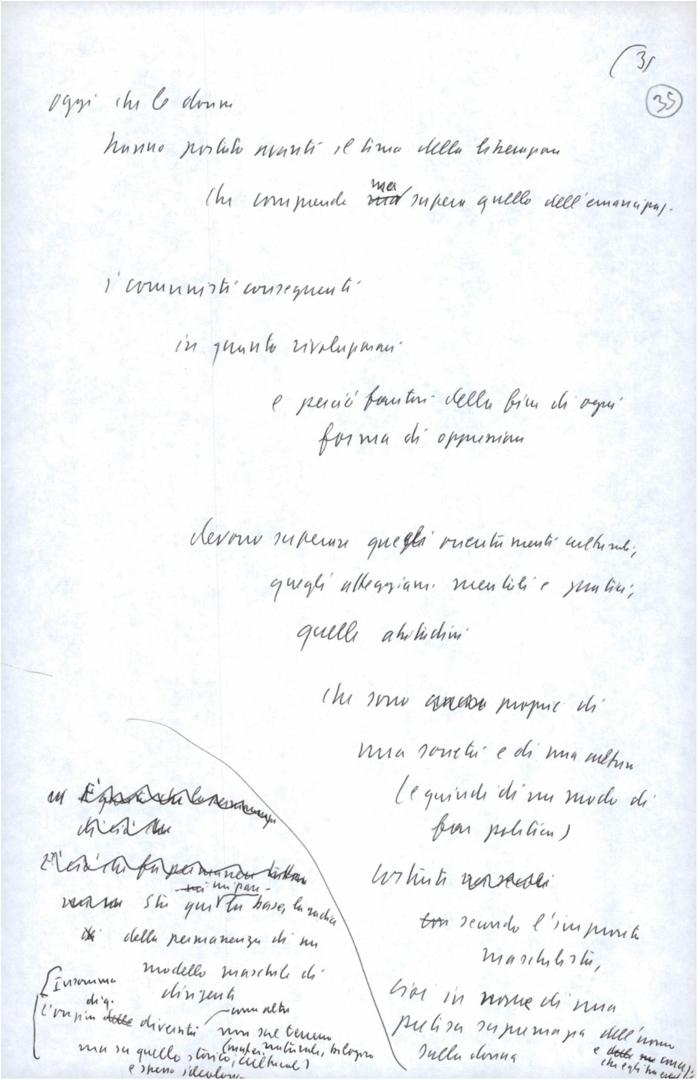 35
35
oggi che le donne
hanno portato avanti il tema della liberazione
che comprende ma supera quello dell'emancipaz.
i comunisti conseguenti
in quanto rivoluzionari
e perciò fautori della fine di ogni
forma di oppressione
devono superare quegli orientamenti culturali,
quegli atteggiam. mentali e pratici,
quelle abitudini
che sono proprie di
una società e di una cultura
(e quindi di un modo di
fare politica)
costruite
secondo l'impronta
maschilista,
cioè in nome di una
pretesa supremazia dell'uomo
sulla donna
e
che egli ha
1)
2)
mi pare
Sta qui la base, la radice
della permanenza di un
modello maschile di
dirigenti
Insomma
l'origine di q. diversità
come altre
non sul terreno
(mater. naturale, biologico
ma su quello storico, culturale)
e spesso ideologico